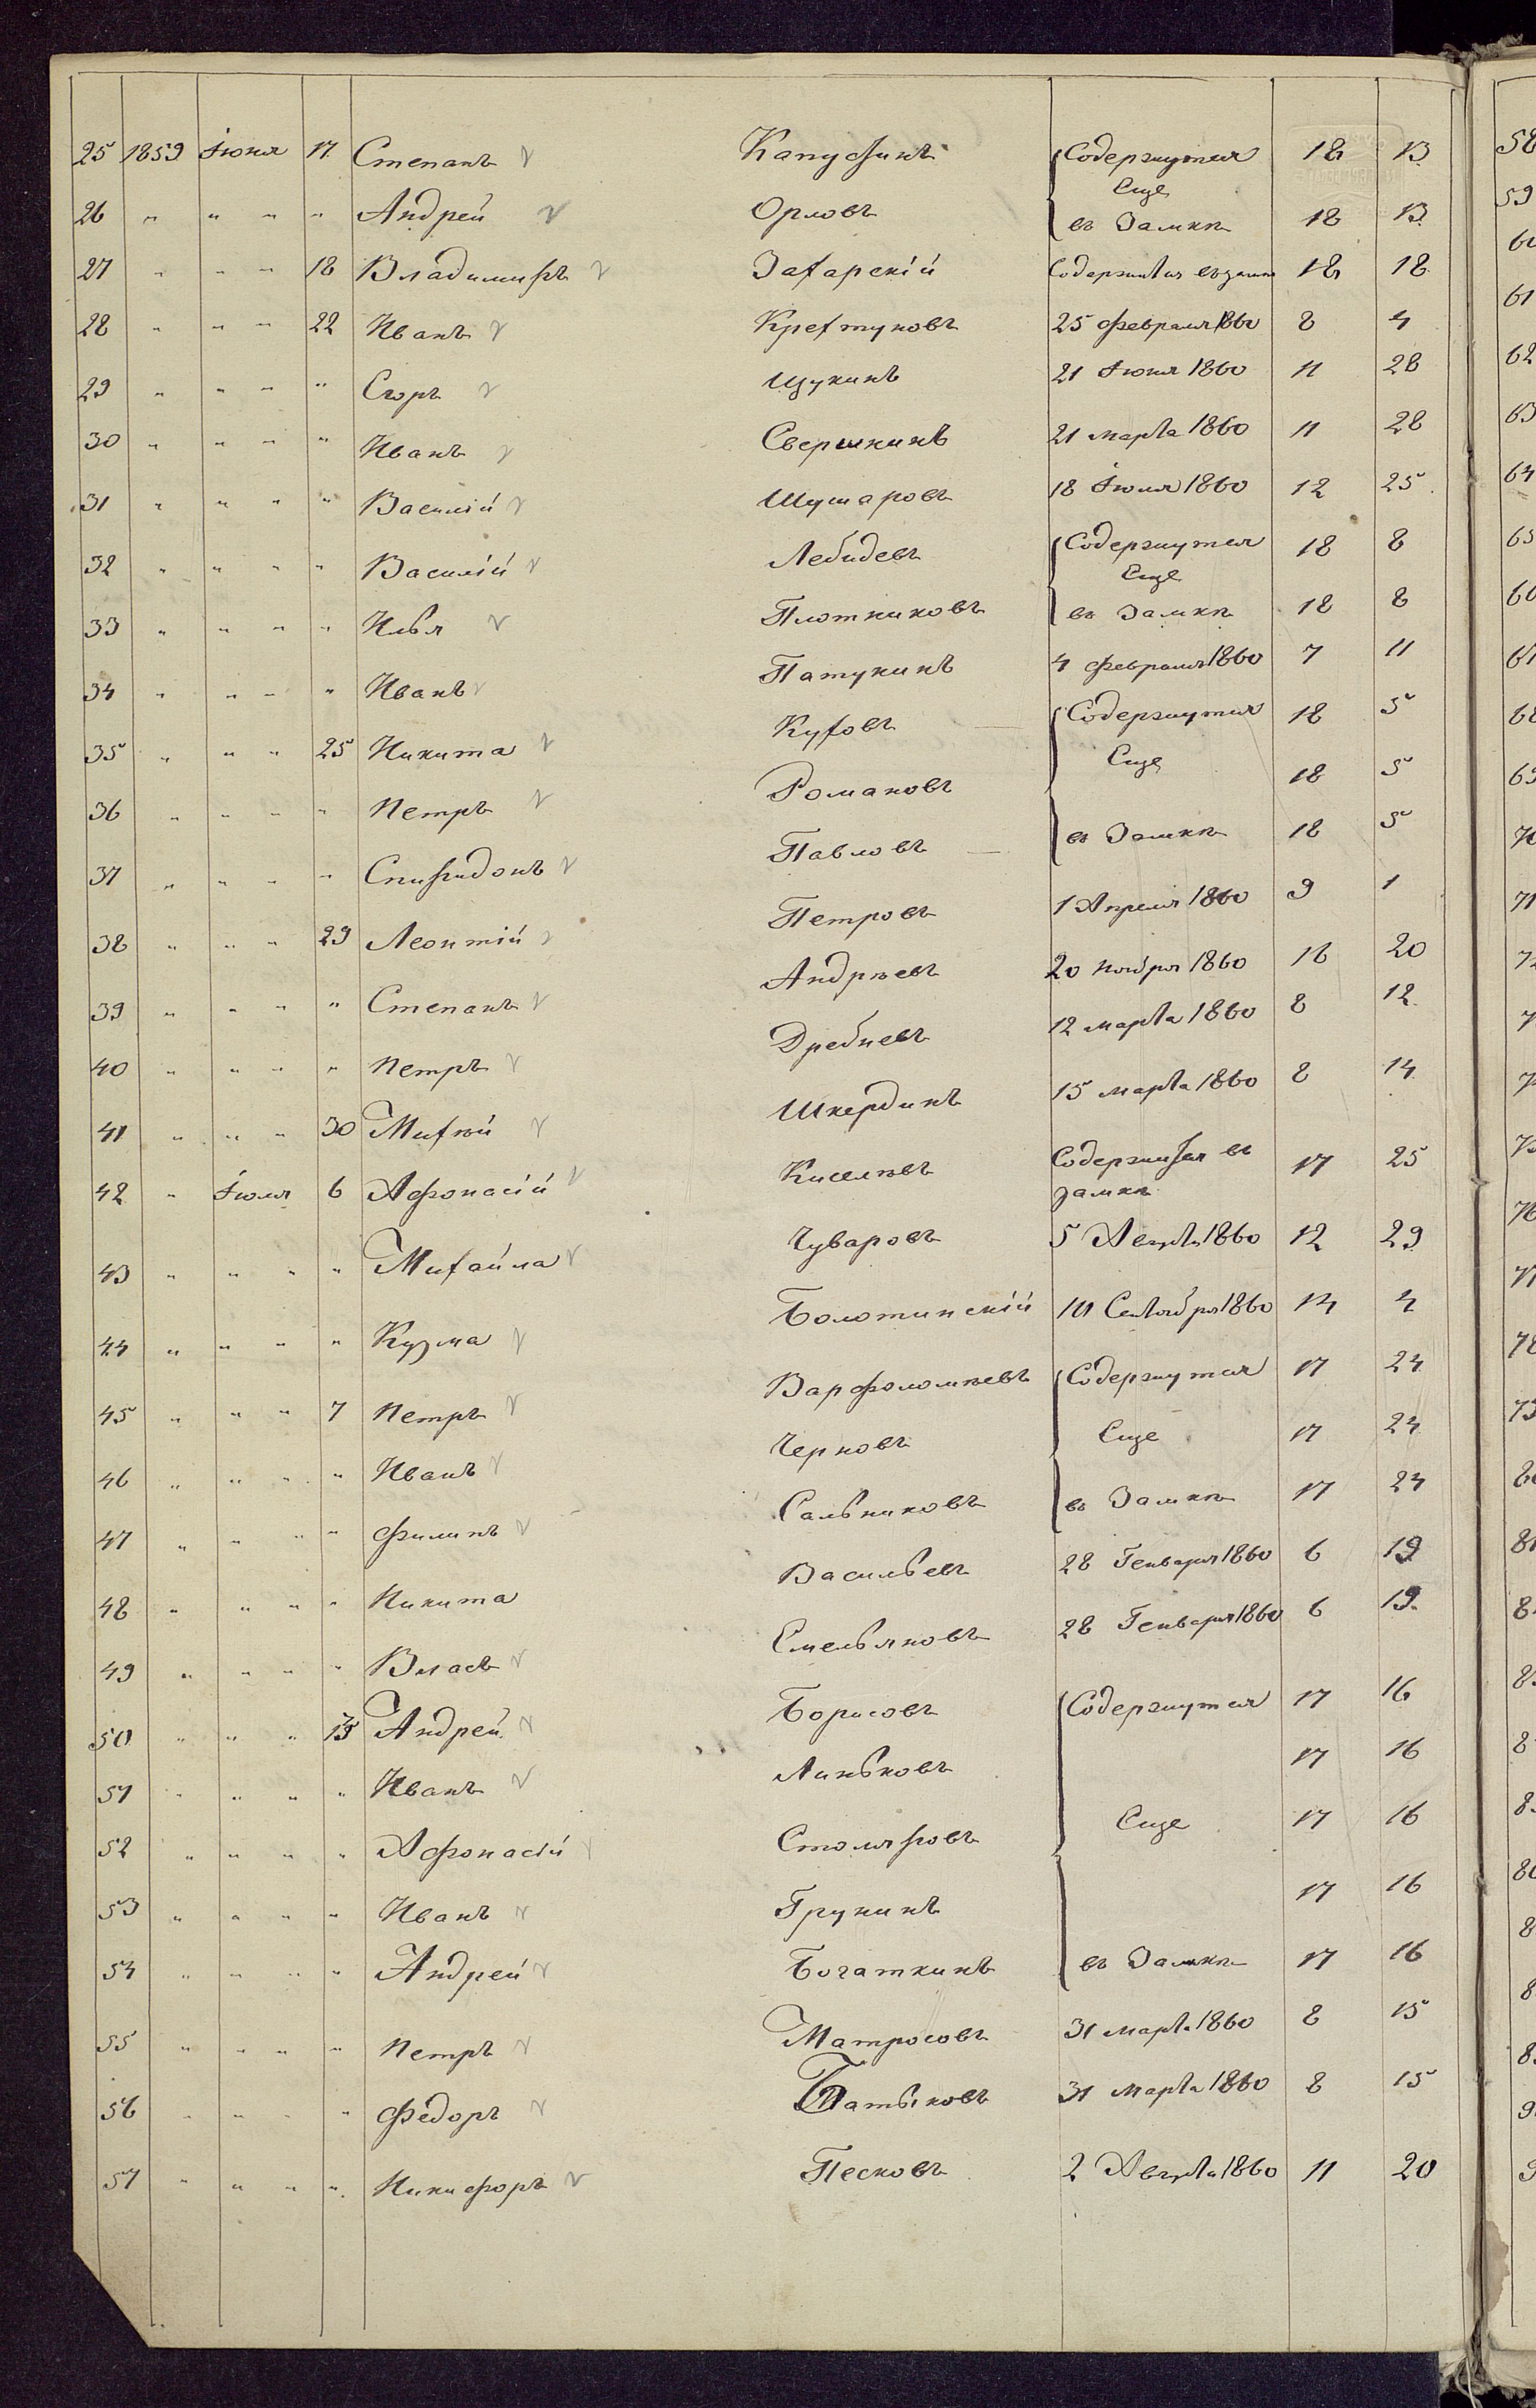 25 1859 Іюня 17 Степанъ Капусинъ Содержутся 18 13
Еще
26 " " " " Андрей Орловъ въ Замкѣ 18 13
27 " " " 18 Владимиръ Захарскій Содержится въ замкѣ 18 18
28 " " " 22 Иванъ Крехтуновъ 25 Февраля 1860 8 4
29 " " " " Егоръ Щукинъ 21 Іюня 1860 11 28
30 " " " " Иванъ Свершкинъ 21 марта 1860 11 28
31 " " " " Василій Шушаровъ 18 Іюля 1860 12 25
32 " " " " Василій Лебидевъ Содержутся 18 8
Еще
33 " " " " Илья Плотниковъ въ Замкѣ 18 8
34 " " " " Иванъ Патукинъ 4 Февраля 1860 7 11
35 " " " 25 Никита Куховъ Содержутся 18 5
36 " " " " Петръ Романовъ Еще 18 5
37 " " " " Спиридонъ Павловъ въ Замкѣ 18 5
38 " " " 29 Леонтій Петровъ 1 Апреля 1860 9 1
39 " " " " Степанъ Андрѣевъ 20 Ноября 1860 16 20
40 " " " " Петръ Дребневъ 12 марта 1860 8 12
41 " " " 30 Михѣй Шкердинъ 15 марта 1860 8 14
42 " Іюля 6 Афонасій Киселѣвъ Содержится въ 17 25
замкѣ
43 " " " " Михайла Чуваровъ 5 Августа 1860 12 29
44 " " " " Кузма Болотинскій 10 Сентября 1860 14 4
45 " " " 7 Петръ Варфоломѣевъ Содержутся 17 24
46 " " " " Иванъ Черновъ Еще 17 24
47 " " " " Филипъ Сальниковъ въ Замкѣ 17 24
48 " " " " Никита Васильевъ 28 Генваря 1860 6 19
49 " " " " Власъ Емельяновъ 28 Генваря 1860 6 19
50 " " " 15 Андрей Борисовъ Содержутся 17 16
51 " " " " Иванъ Линьковъ 17 16
52 " " " " Афонасій Столяровъ Еще 17 16
53 " " " " Иванъ Грунинъ 17 16
54 " " " " Андрей Богаткинъ въ Замкѣ 17 16
55 " " " " Петръ Матросовъ 31 марта 1860 8 15
56 " " " " Федоръ Батьковъ 31 Марта 1860 8 15
57 " " " " Никифоръ Песковъ 2 Августа 1860 11 20